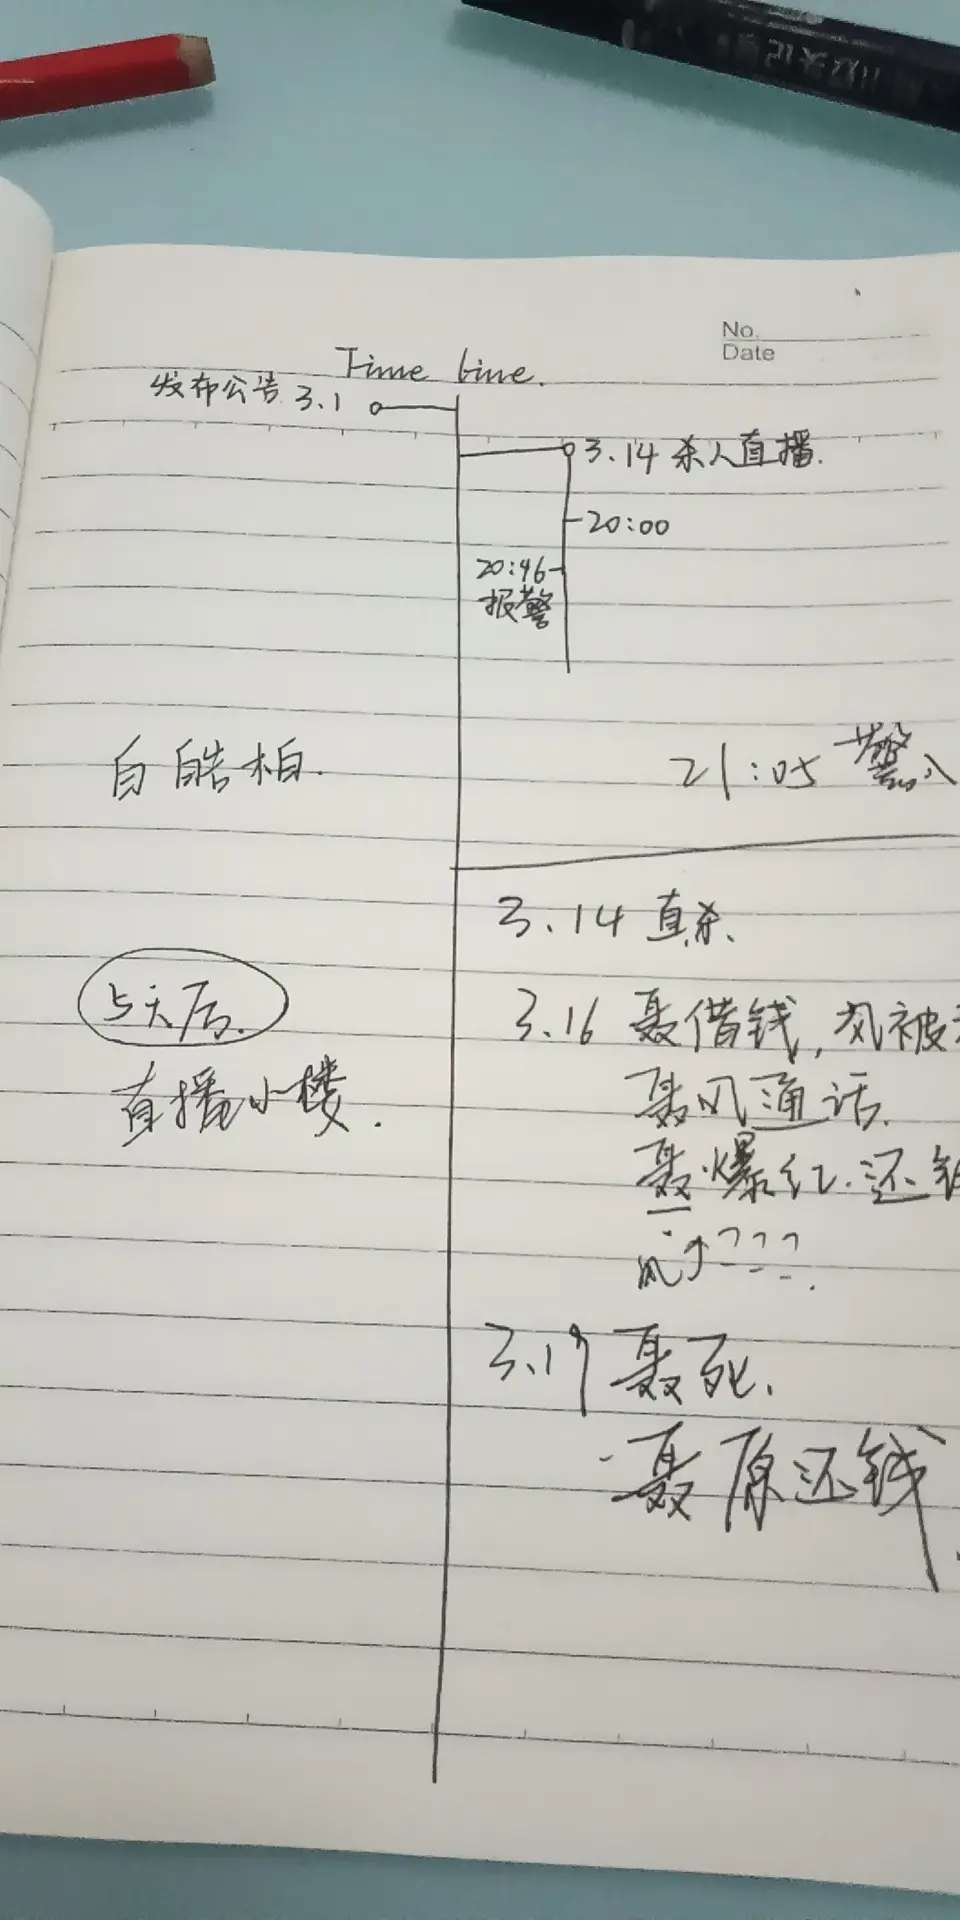 No.
Date
Time line.
发布公告 3.1
3.14 杀人直播.
20:00
20:46
报警
白皓柏.
21:05 警
3.14 直杀.
5天后.
3.16 聂借钱, 风被
直播小楼.
聂风通话.
聂爆红.还钱
风 ???.
3.17 聂死.
聂原还钱